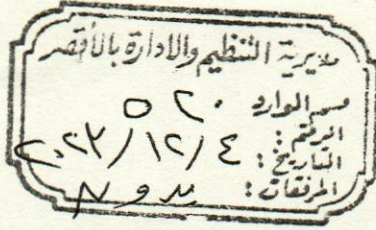 مديرية التنظيم والادارة بالأقصر
قسم الوارد ٥٢٠
الرقم :
التاريخ : ٢٠٢٣/١٢/٤
المرفقات : بدون